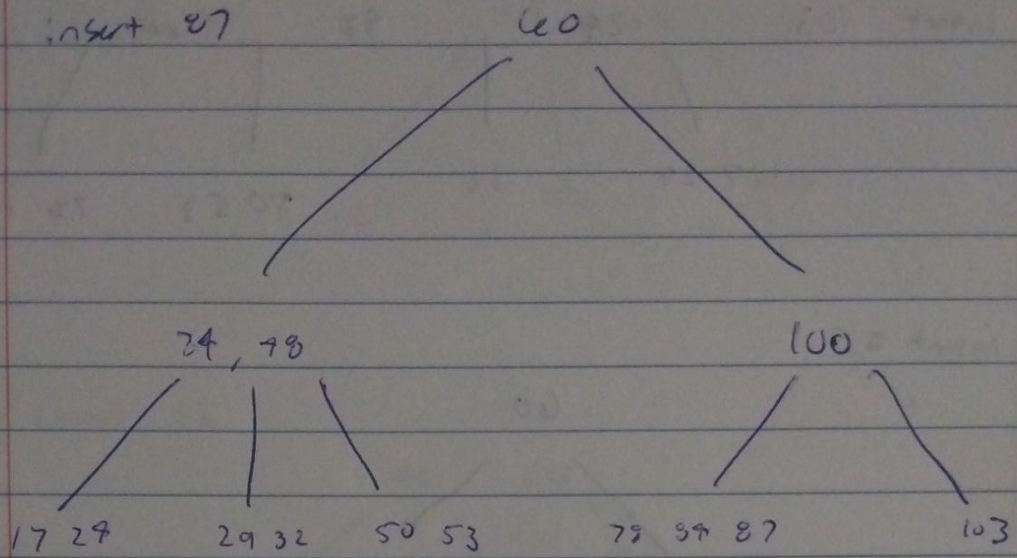 insert 87 60
24, 48
100
17 24 29 32 50 53 78 84 87 103